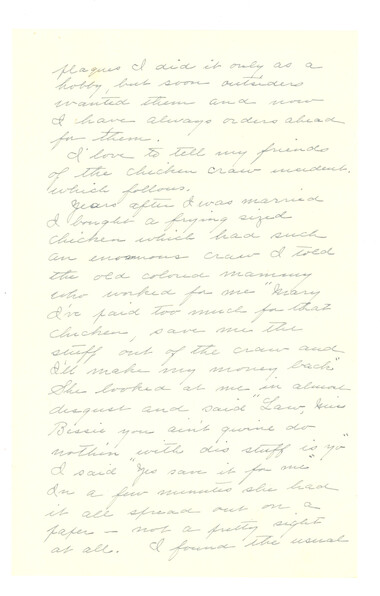 plaques I did it only as a
hobby, but soon outsiders
wanted them and now
I have always orders ahead
for them.
I love to tell my friends
of the chicken craw incident.
which follows.
Years after I was married
I bought a frying sized
chicken which had such
an enormous craw I told
the old colored mammy
who worked for me "Mary
I've paid too much for that
chicken, save me the
stuff out of the craw and
I'll make my money back"
She looked at me in almost
disgust and said "Law, Miss
Bessie you ain't gwine do
nothin with dis stuff is yo"
I said "Yes save it for me"
In a few minutes she had
it all spread out on a
paper — not a pretty sight
at all. I found the usual